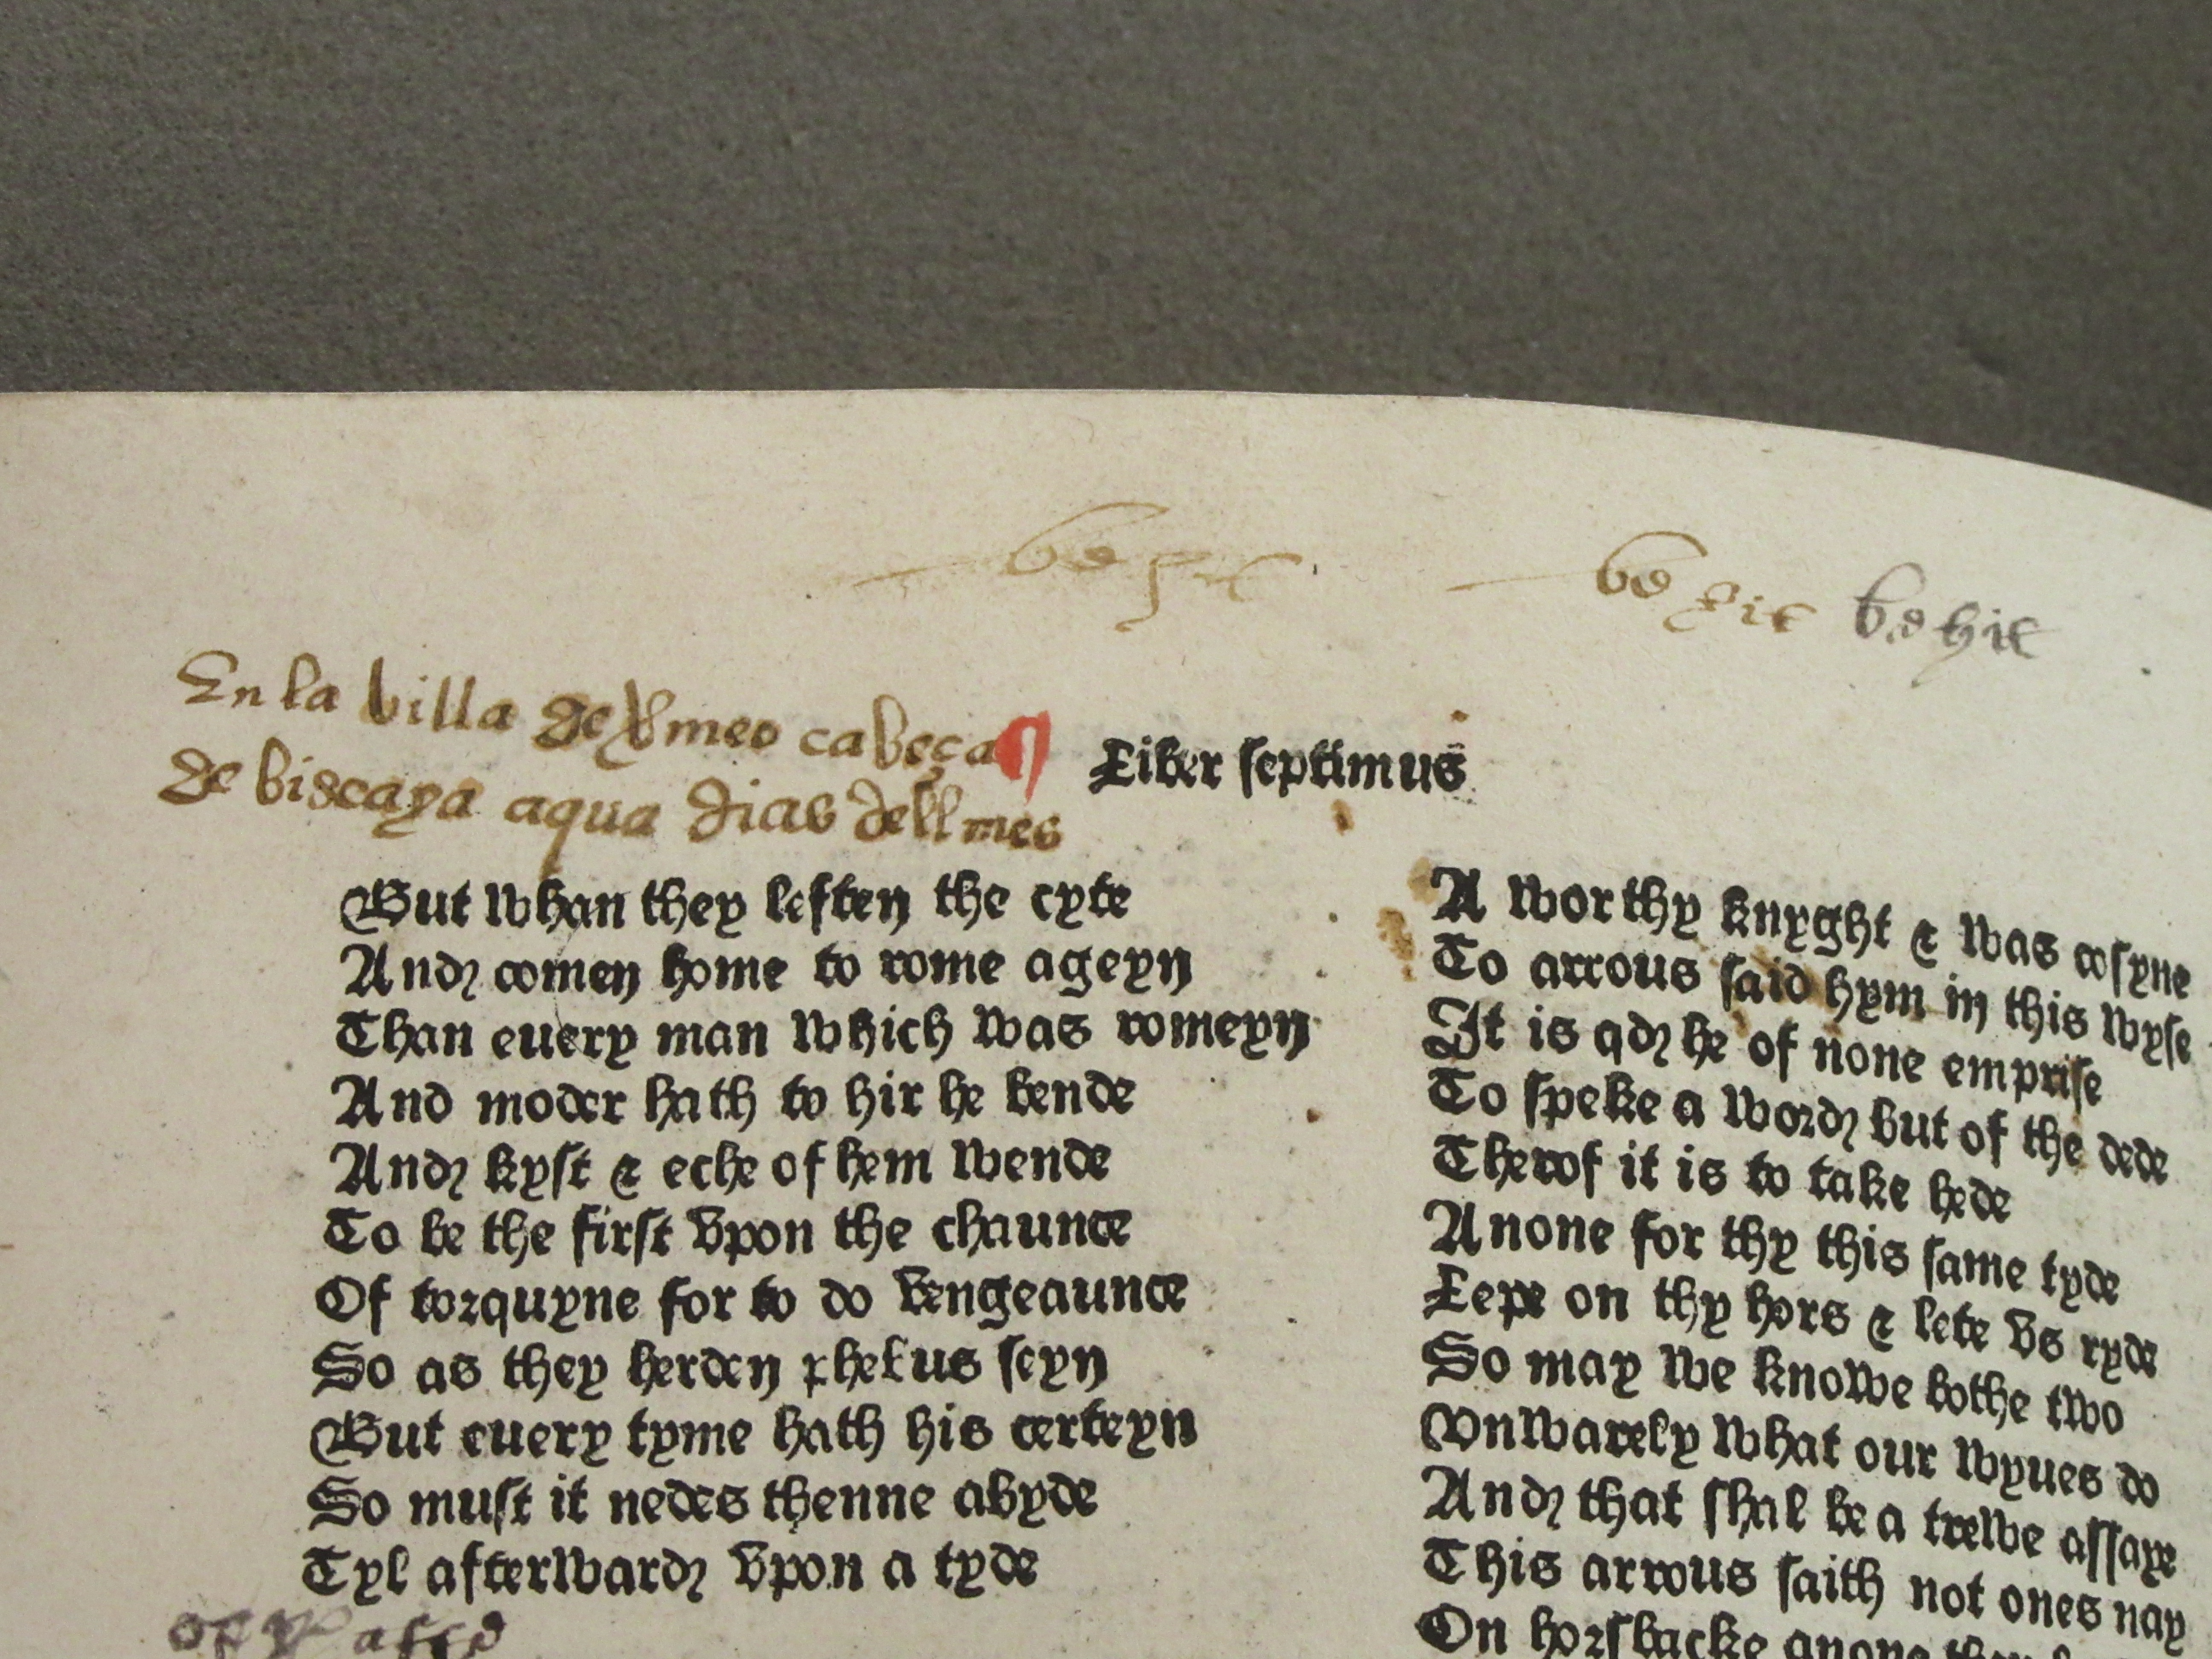 be hit
En la billa de bmeo cabeça
de biscaya aqua dias dell mes
Liber septimus
But whan they leften the cyte
And comen home to rome ageyn
Than euery man which was romeyn
And moder hath to hir he bende
And kyst & eche of hem wende
To be the first vpon the chaunce
Of torquyne for to do vengeaunce
So as they herden phebus seyn
But euery tyme hath his certeyn
So must it nedes thenne abyde
Tyl afterward vpon a tyde
A worthy knyght & was cosyne
To arrous said hym in this wyse
It is qd he of none emprise
To speke a word but of the dede
Therof it is to take hede
Anone for thy this same tyde
Lepe on thy hors & lete vs ryde
So may we knowe bothe two
Vnwarely what our wyues do
And that shal be a trewe assaye
This arrous saith not ones nay
On horsbacke anone